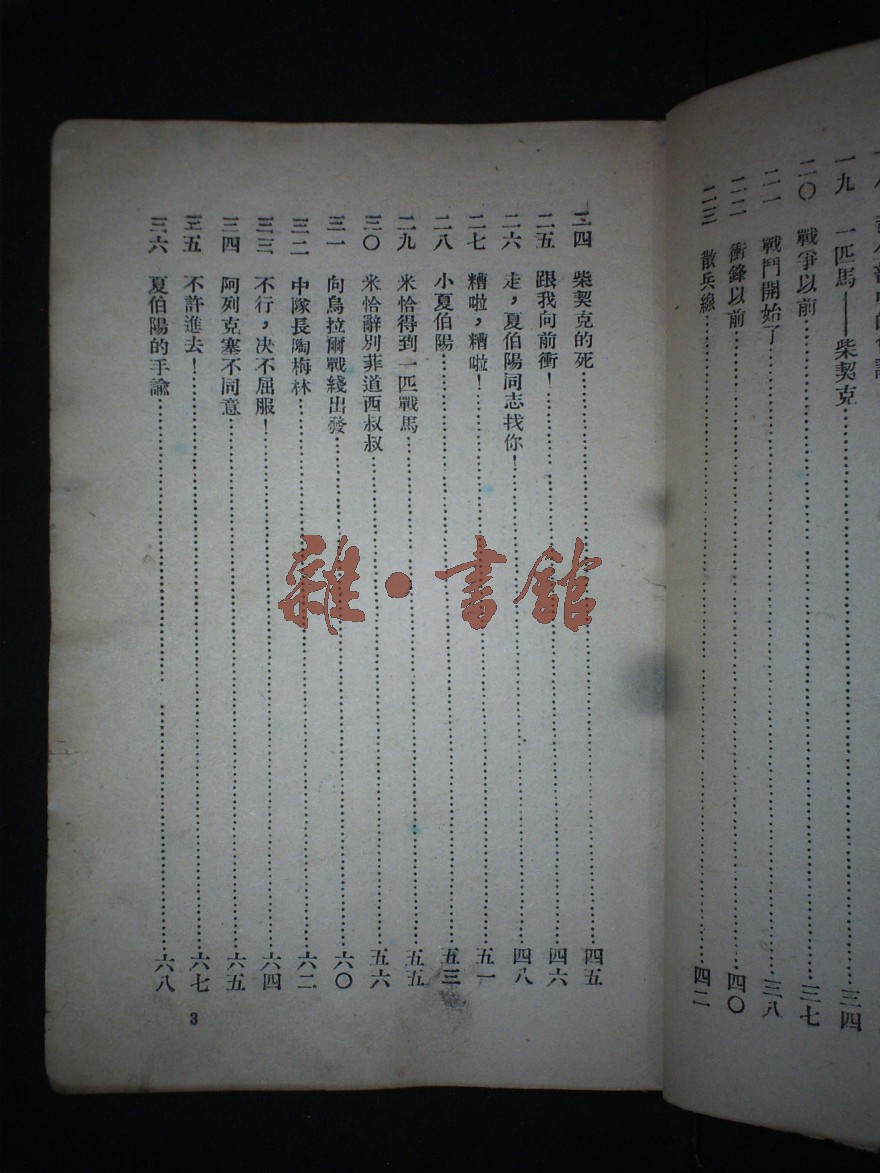 一九　一匹馬——柴契克……三四
二〇　戰爭以前……三七
二一　戰鬥開始了……三八
二二　衝鋒以前……四〇
二三　散兵線……四二
二四　柴契克的死……四五
二五　跟我向前衝！……四六
二六　走，夏伯陽同志找你！……四八
二七　糟啦，糟啦！……五一
二八　小夏伯陽……五三
二九　米恰得到一匹戰馬……五五
三〇　米恰辭別菲道西叔叔……五六
三一　向烏拉爾戰綫出發……六〇
三二　中隊長陶梅林……六二
三三　不行，決不屈服！……六四
三四　阿列克塞不同意……六五
三五　不許進去！……六七
三六　夏伯陽的手諭……六八
3
雜·書館